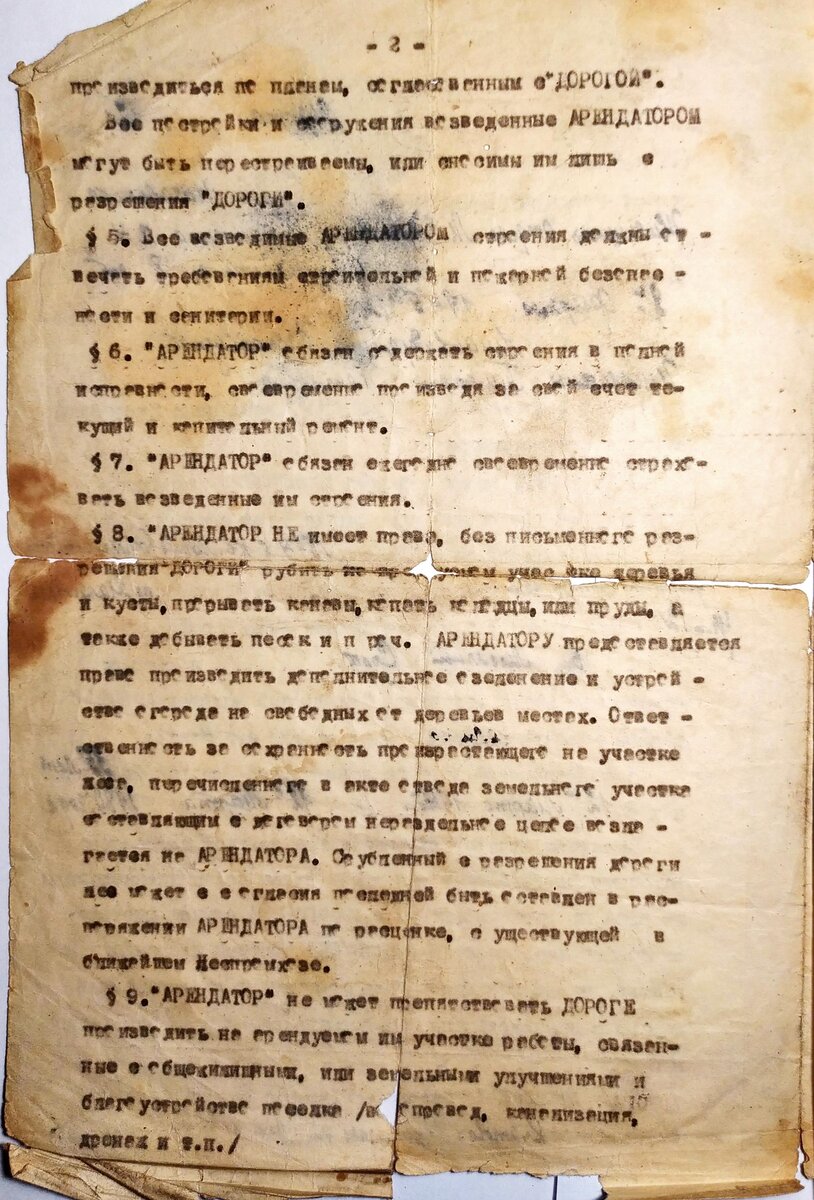 - 2 -
производиться по планам, согласованным с "ДОРОГОЙ".
Все постройки и сооружения возведенные АРЕНДАТОРОМ
могут быть перестраиваемы, или сносимы им лишь с
разрешения "ДОРОГИ".
§ 5. Все возводимые АРЕНДАТОРОМ строения должны от -
вечать требованиям строительной и пожарной безопас -
ности и санитарии.
§ 6. "АРЕНДАТОР" обязан содержать строения в полной
исправности, своевременно производя за свой счет те-
кущий и капитальный ремонт.
§ 7. "АРЕНДАТОР" обязан ежегодно своевременно страхо-
вать возведенные им строения.
§ 8. "АРЕНДАТОР НЕ имеет права, без письменного раз-
решения "ДОРОГИ" рубить на участке деревья
и кусты, прорывать канавы, копать колодцы, или пруды, а
также добывать песок и п роч. АРЕНДАТОРУ предоставляется
право производить дополнительное озеленение и устрой -
ство огорода на свободных от деревьев местах. Ответ -
ственность за сохранность произрастающего на участке
леса, перечисленного в акте отвода земельного участка
составляющим с договором нераздельное целое возла -
гается на АРЕНДАТОРА. Срубленный с разрешения дороги
лес может с согласия последней быть оставлен в рас-
поряжении АРЕНДАТОРА по расценке, с уществующей в
ближайшем Леспромхозе.
§ 9. "АРЕНДАТОР" не может препятствовать ДОРОГЕ
производить на арендуемом им участке работы, связан-
ные с общежилищными, или земельными улучшениями и
благоустройства поселка /водопровод, канализация,
дренаж и т.п./